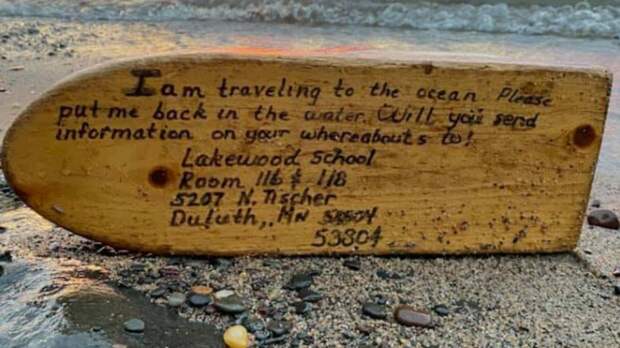 I am traveling to the ocean Please
put me back in the water. Will you send
information on your whereabouts to!
Lakewood School
Room 116 & 118
5207 N. Tischer
Duluth, MN
53804